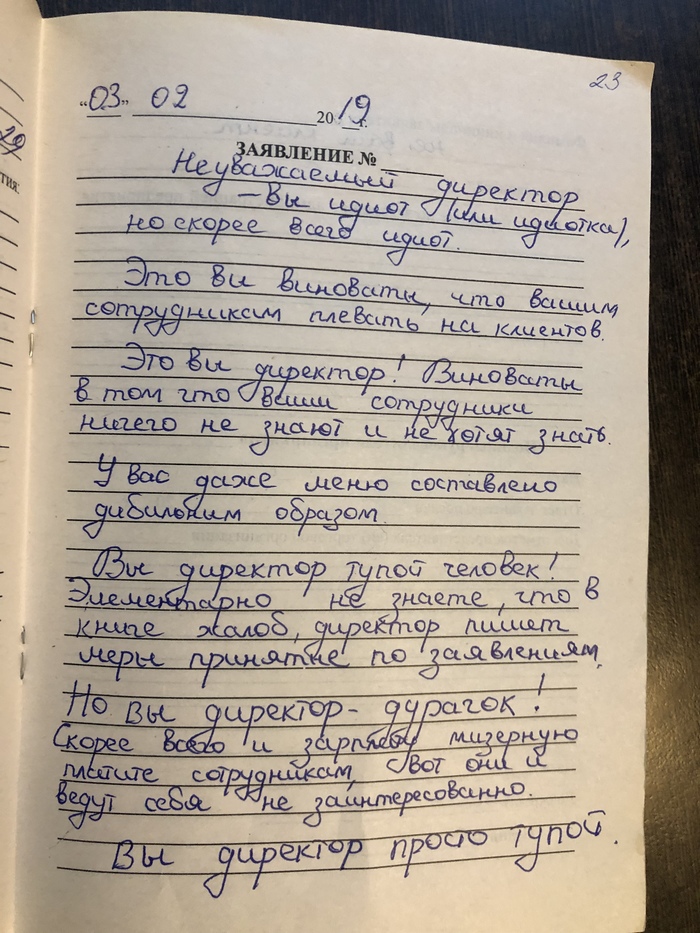 23
"03" 02 2019 г.
ЗАЯВЛЕНИЕ №
Неуважаемый директор
– Вы идиот (или идиотка),
но скорее всего идиот.
Это вы виноваты, что вашим
сотрудникам плевать на клиентов.
Это вы директор! Виноваты
в том что ваши сотрудники
ничего не знают и не хотят знать.
У вас даже меню составлено
дибильним образом.
Вы директор тупой человек!
Элементарно не знаете, что в
книге жалоб, директор пишет
меры принятые по заявлениям.
Но вы директор - дурагок!
Скорее всего и зарплату мизерную
платите сотрудникам, Вот они и
ведут себя не заинтересованно.
Вы директор просто тупой.